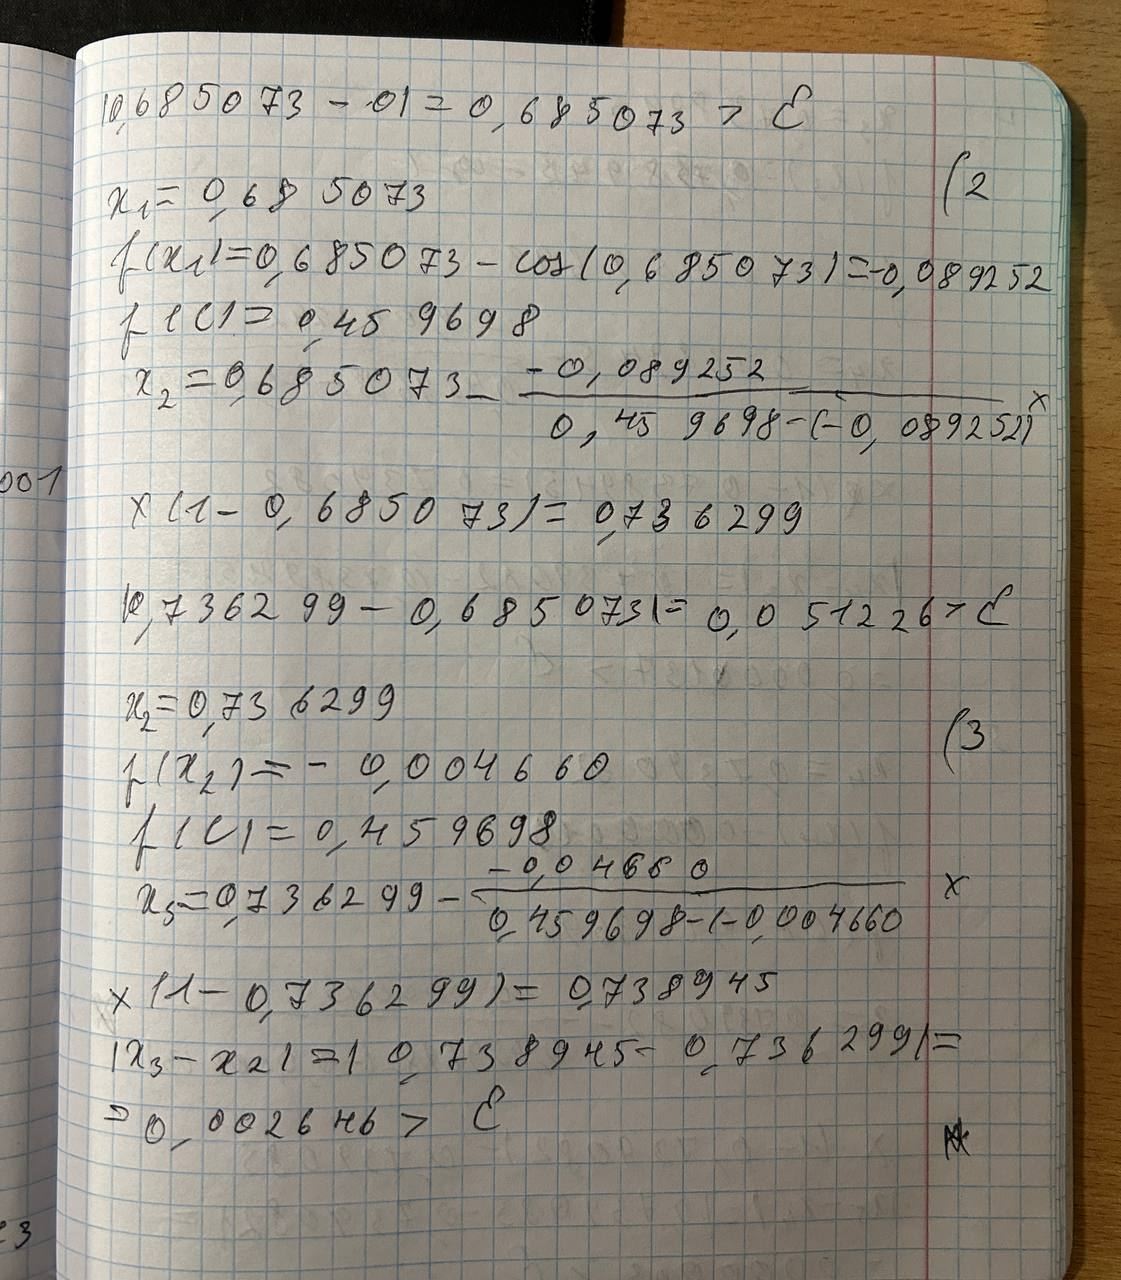 |0,685073 - 0| = 0,685073 > ε
(2
x₁ = 0,685073
f(x₁) = 0,685073 - cos(0,685073) = -0,089252
f(C) = 0,459698
x₂ = 0,685073 - -0,089252 ×
0,459698-(-0,089252)
001
×(1 - 0,685073) = 0,736299
|0,736299 - 0,685073| = 0,051226 > ε
x₂ = 0,736299
(3
f(x₂) = - 0,004660
f(C) = 0,459698
x₃ = 0,736299 - -0,04660 ×
0,459698-(-0,004660
×(1 - 0,736299) = 0,738945
|x₃ - x₂| = | 0,738945 - 0,736299| =
= 0,002646 > ε